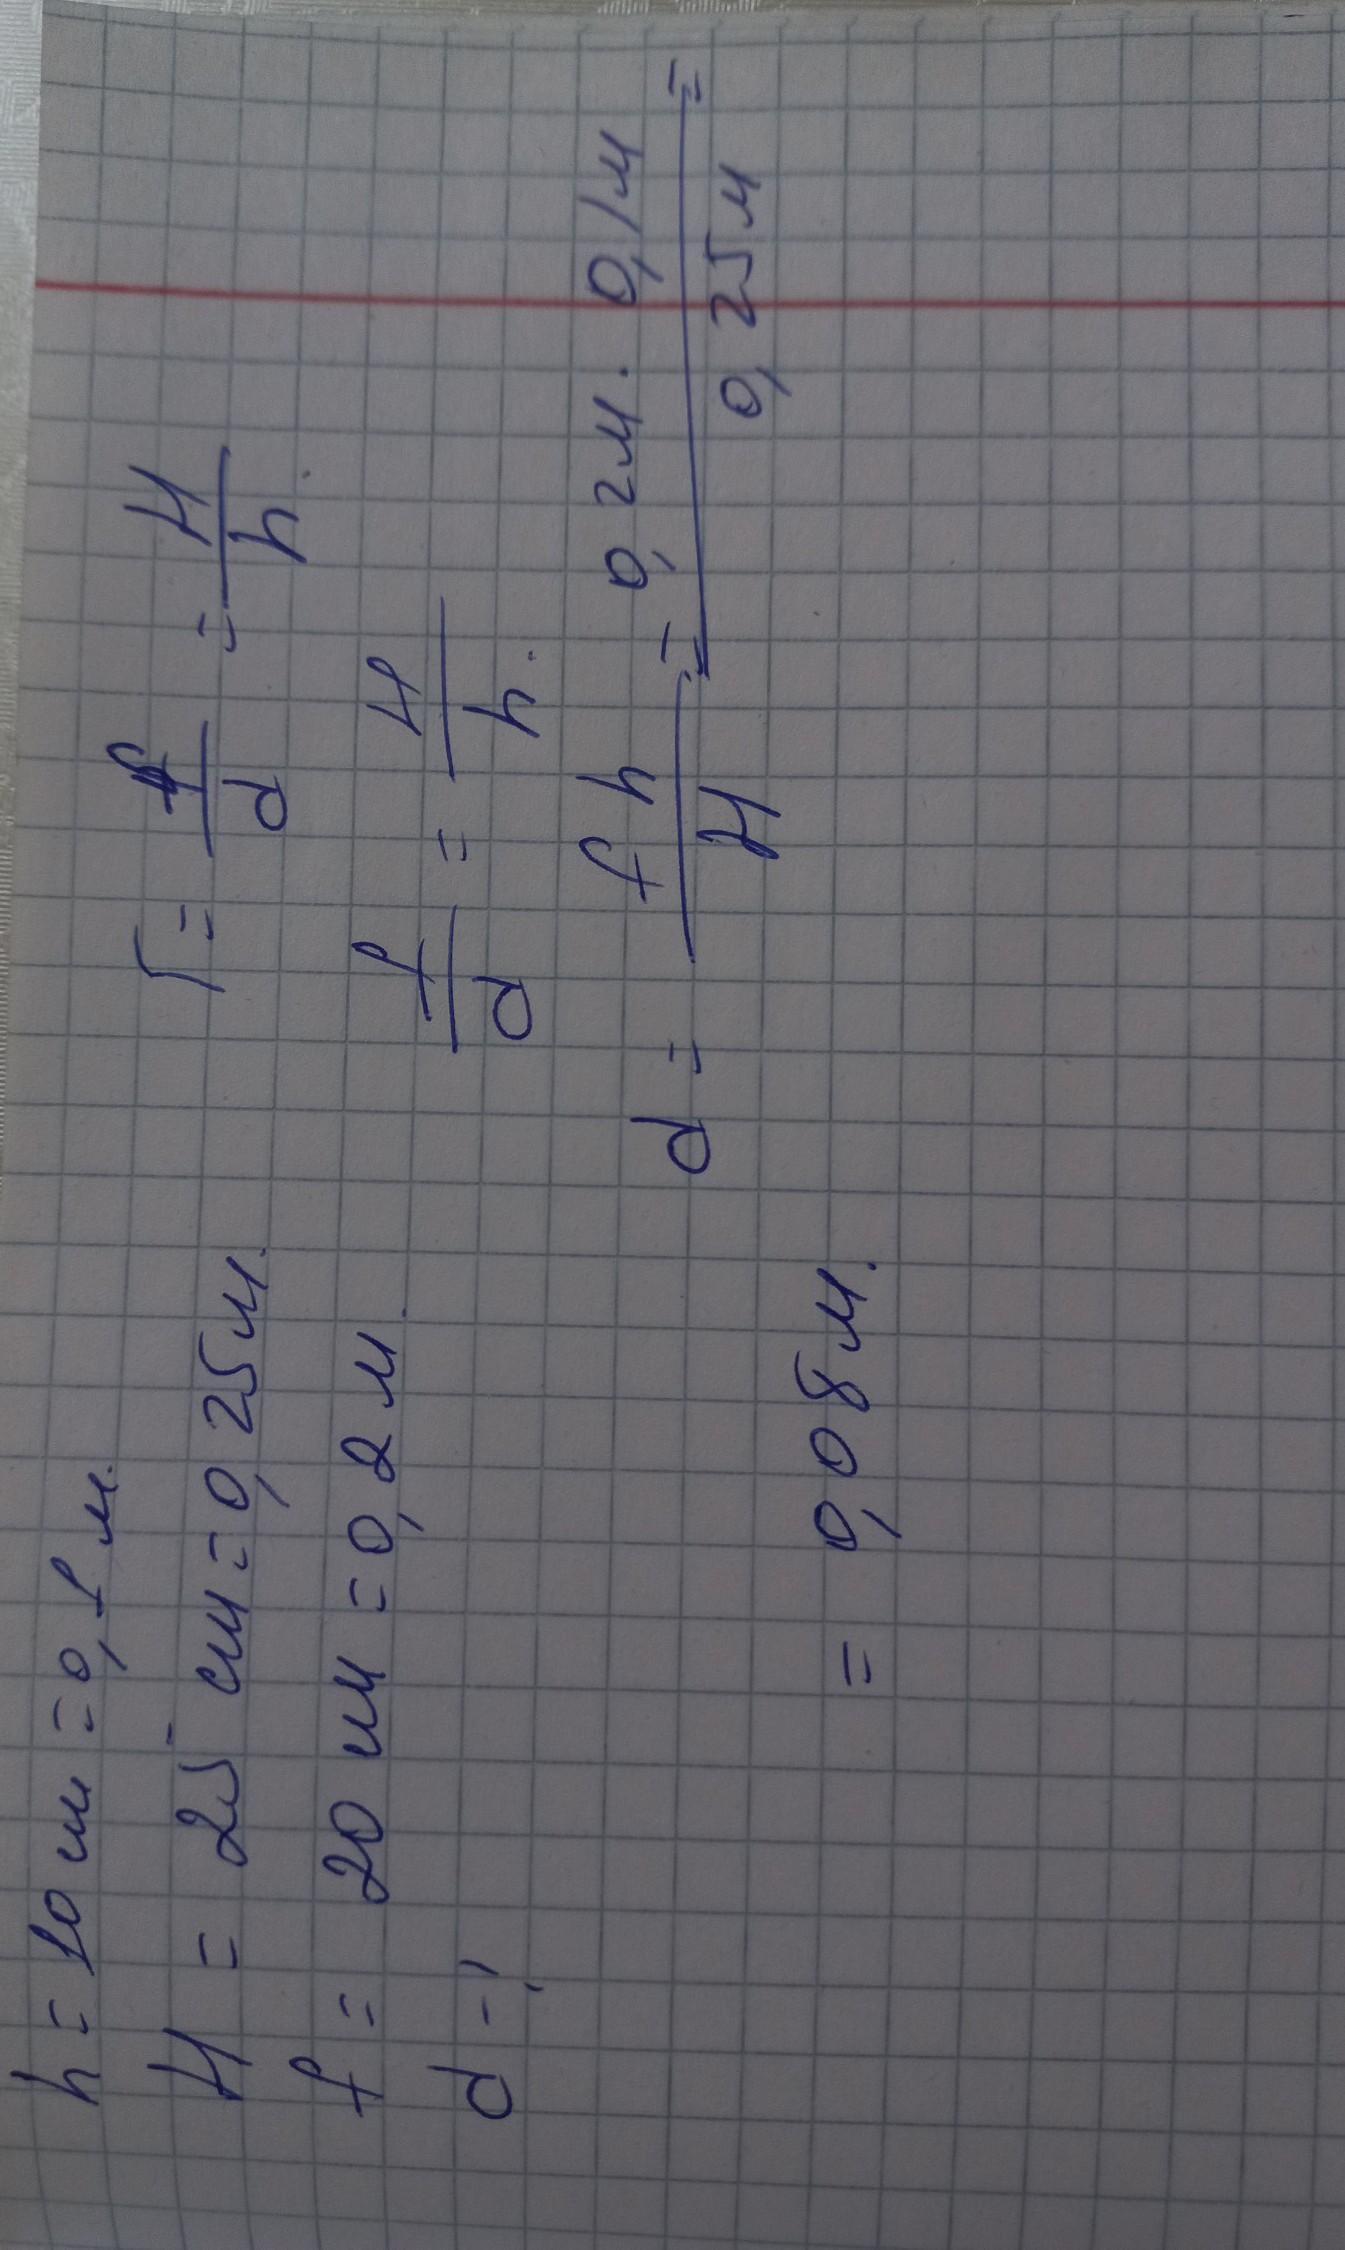 h = 10 см = 0,1 м.
H = 25 см = 0,25 м.
f = 20 см = 0,2 м.
d - ?
Г = f/d = H/h.
f/d = H/h.
d = f h/H = 0,2 м · 0,1 м/0,25 м =
= 0,08 м.